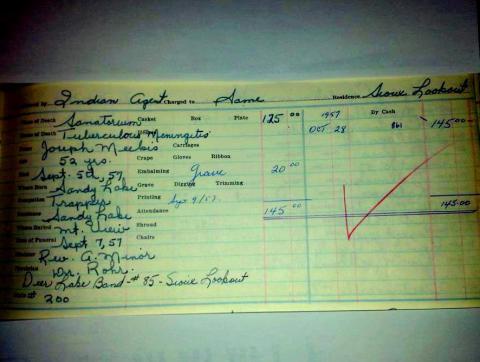 Ordered by Indian Agent Charged to Same Residence Sioux Lookout
Place of Death Sanatorium Casket Box Plate 125 00 1957 By Cash
Cause of Death Tuberculous Meningitis OCT. 28 861 145.00
Name Joseph Meekis Carriages
Age 52 yrs. Crape Gloves Ribbon
Died Sept. 5th, 57, Embalming Grave 20 00
Where Born Sandy Lake Grave Digging Trimming
Occupation Trapper Printing Sept 9/57.
Residence Sandy Lake Attendance 145 00 145.00
Where Buried Mt. View Shroud
Date of Funeral Sept 7, 57 Chairs
Rev. A. Minor
Physician Dr. Rohr.
Deer Lake Band - # 85 - Sioux Lookout
200